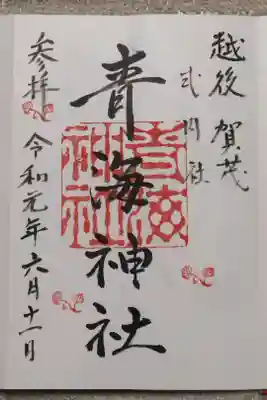 越後 賀茂
式内社
青海神社
青海
神社
参拝
令和元年六月十一日